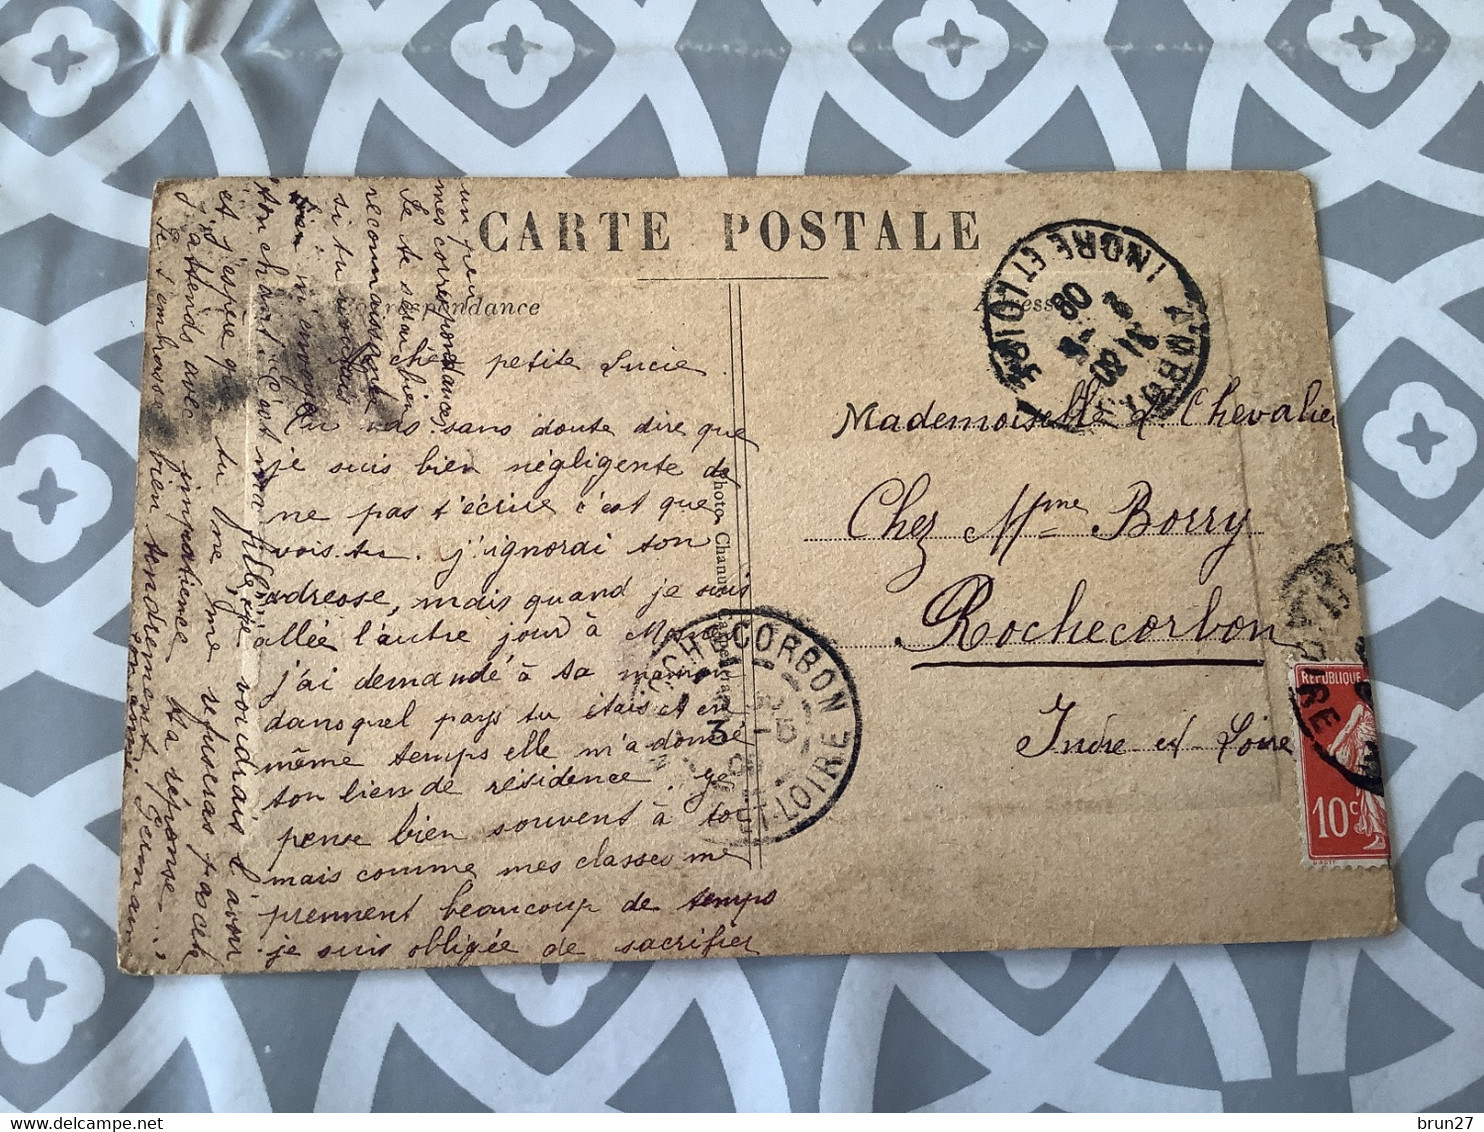 CARTE POSTALE
Correspondance
Adresse
chère petite Lucie
Tu vas sans doute dire que
je suis bien négligente de
ne pas t'écrire c'est que
vois-tu j'ignorai ton
adresse, mais quand je suis
allée l'autre jour à
j'ai demandé à ta maman
dans quel pays tu étais et en
même temps elle m'a donné
ton lieu de résidence. Je
pense bien souvent à toi
mais comme mes classes me
prennent beaucoup de temps
je suis obligée de sacrifier
un peu
mes correspondances
Je te serai bien
reconnaissante
si tu
bien m'envoyer
ton chant c'est ma fille, je voudrais l'avoir
et j'espère que tu ne me refuseras pas cela
J'attends avec impatience ta réponse
Je t'embrasse bien tendrement
Ton amie Germaine
Photo Chanut
Mademoiselle L. Chevalier
Chez Mme Borry
Rochecorbon
Indre et Loire
INDRE ET LOIRE
ROCHECORBON
ET-LOIRE
3 -5
08
REPUBLIQUE
10c
brun27